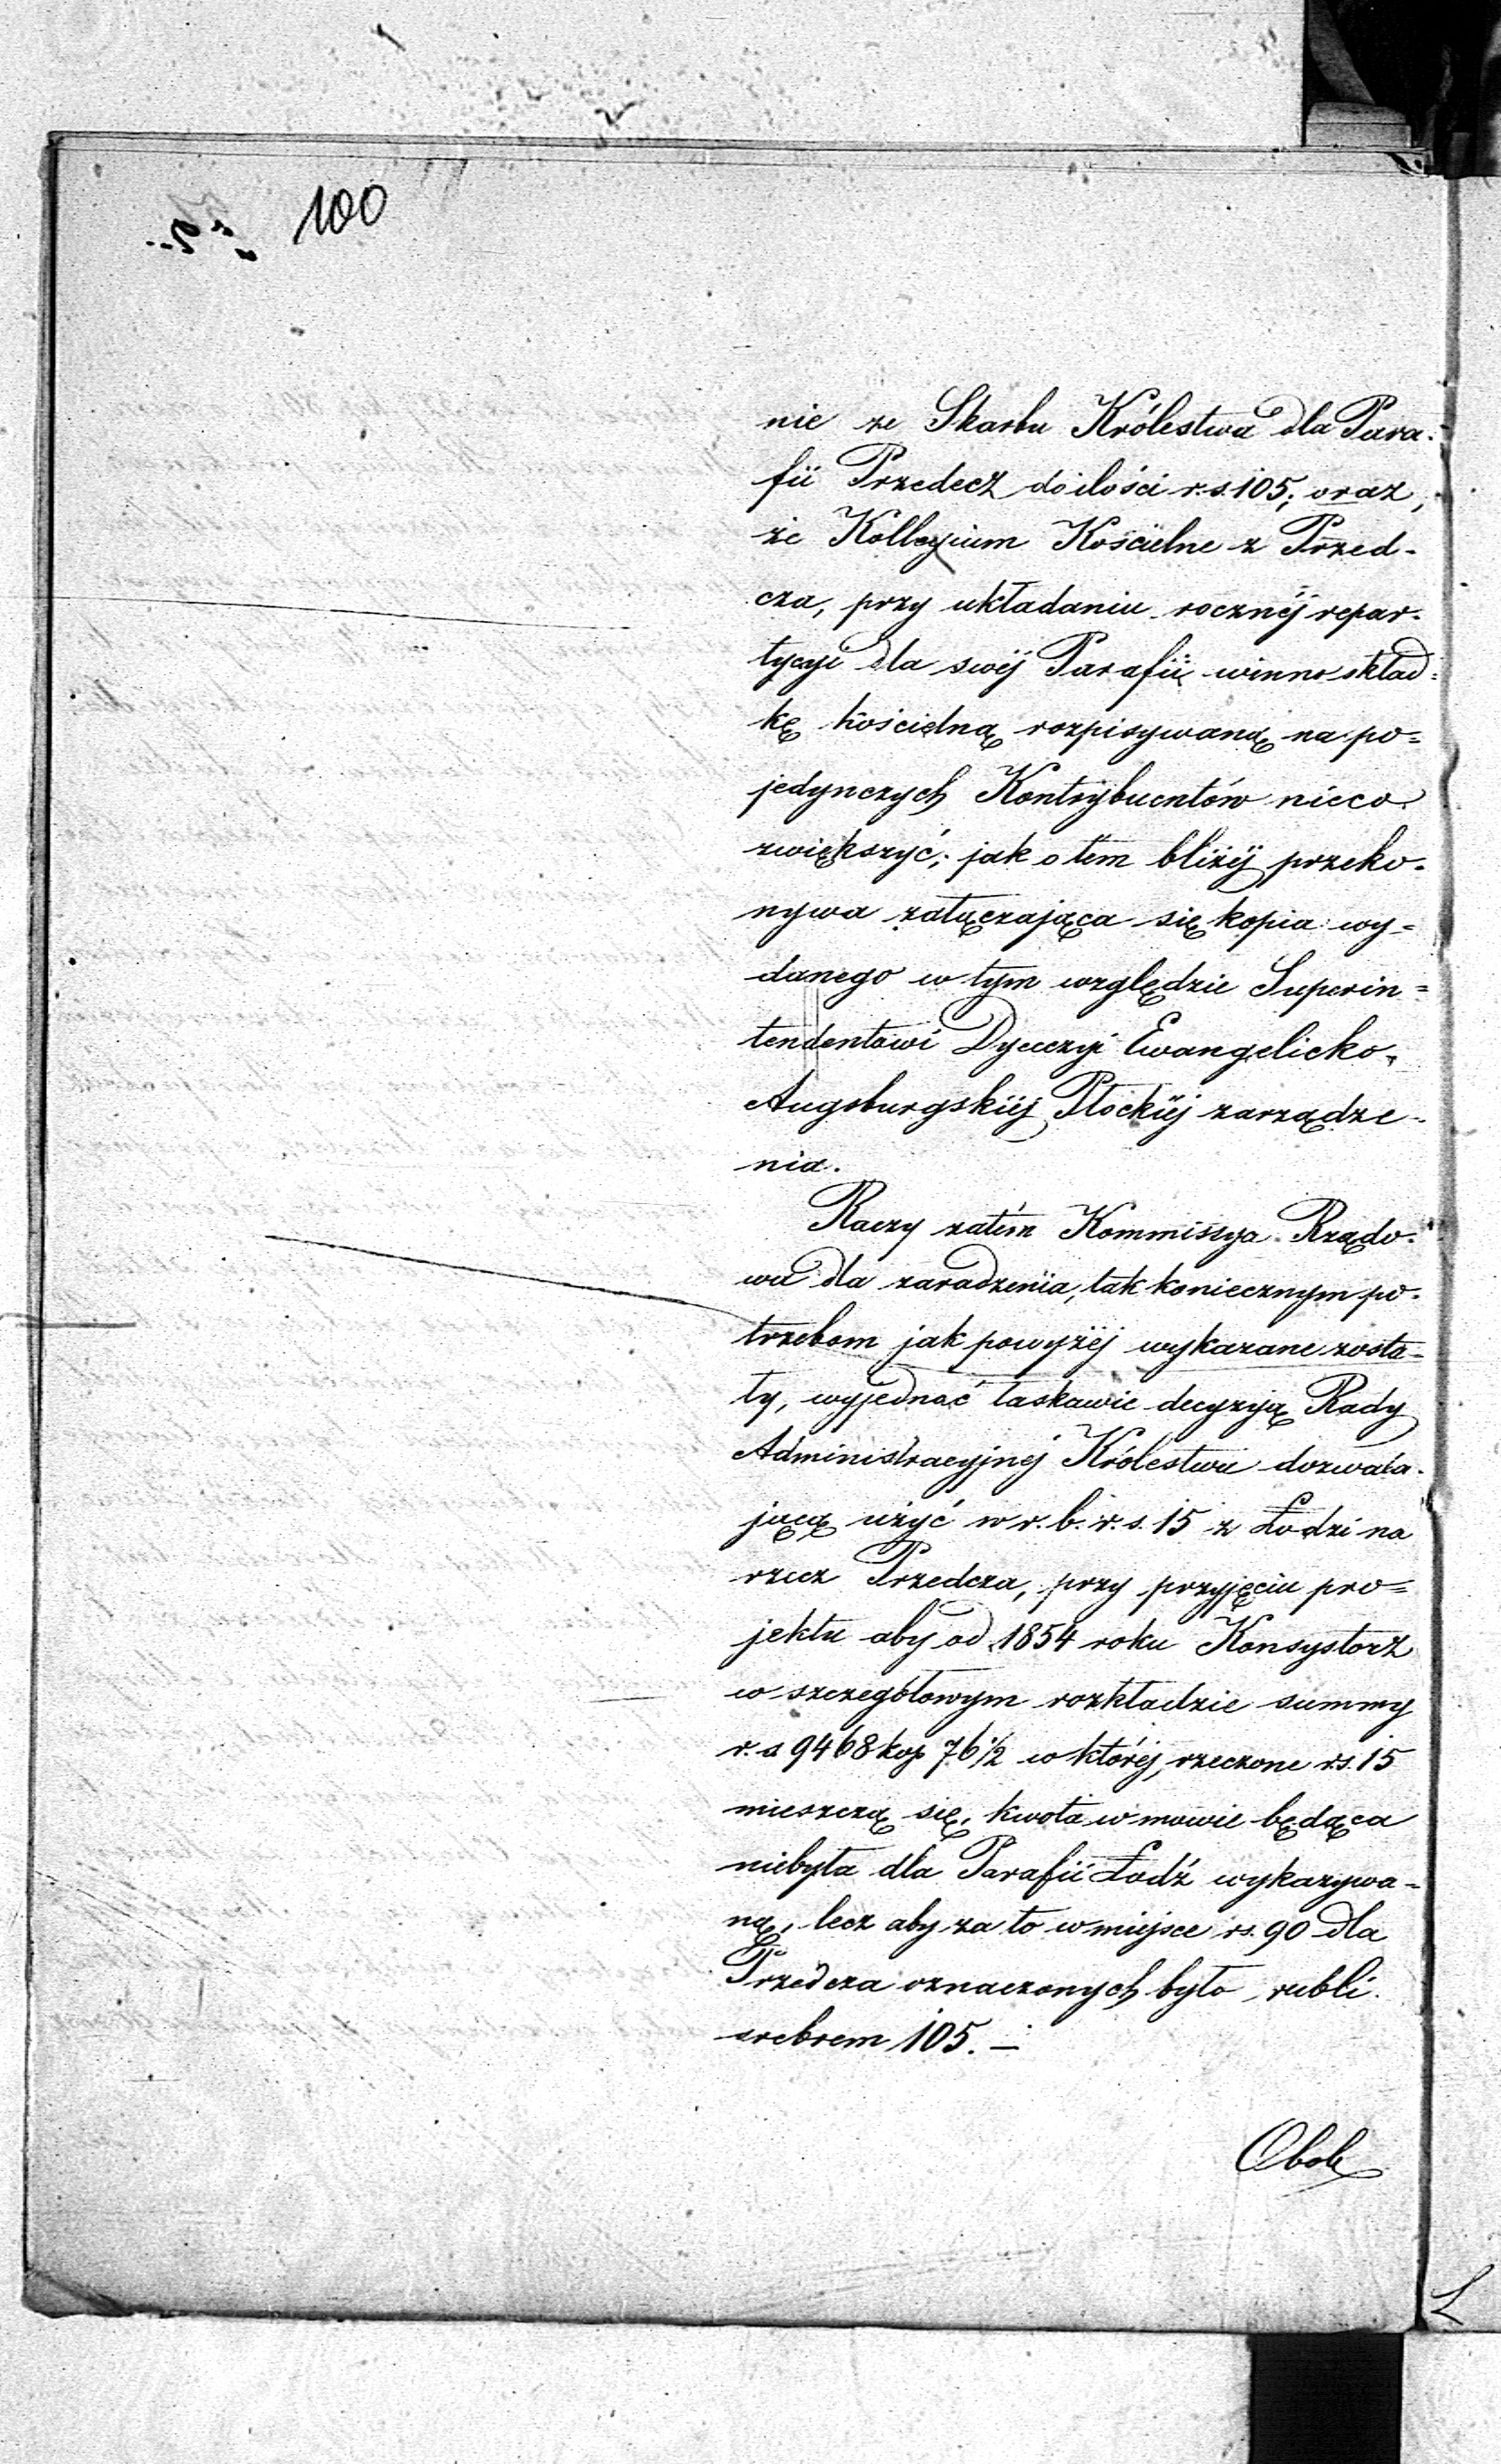 100
nie ze Skarbu Królestwa dla Para-
fii Przedecz do ilości r.s. 105; oraz,
że Kollegium Kościelne z Przed-
cza, przy układaniu rocznéj repar-
tycyi dla swéj Parafii winno skład=
kę kościelną rozpisywaną na po=
jedynczych Kontrybuentów nieco
zwiększyć; jak o tem bliżéj przeko-
nywa załączająca się kopia wy=
danego w tym względzie Superin=
tendentowi Dyecezyi Ewangelicko-
Augsburgskiéj Płockiéj zarządze-
nia.
Raczy zatém Kommissya Rządo-
wa dla zaradzenia, tak koniecznym po-
trzebom jak powyżéj wykazane zosta-
ły, wyjednać łaskawie decyzyą Rady
Administracyjnéj Królestwa dozwala-
jącą użyć w r. b. r. s. 15 z Łodzi na
rzecz Przedcza, przy przyjęciu pro=
jektu aby od 1854 roku Konsystorz
w szczegółowym rozkładzie summy
r. s 9468 kop 76 1/2 w któréj, rzeczone r.s. 15
mieszczą się, kwota w mowie będąca
niebyła dla Parafii Łodź wykazywa-
ną, lecz aby za to w miejsce rs. 90 dla
Przedcza oznaczonych było rubli
srebrem 105. —
Obok